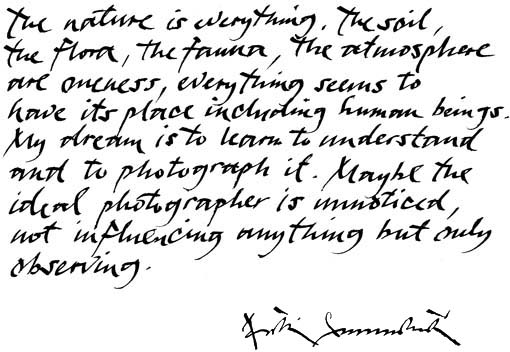 The nature is everything. The soil,
the flora, the fauna, the atmosphere
are oneness, everything seems to
have its place including human beings.
My dream is to learn to understand
and to photograph it. Maybe the
ideal photographer is unnoticed,
not influencing anything but only
observing.